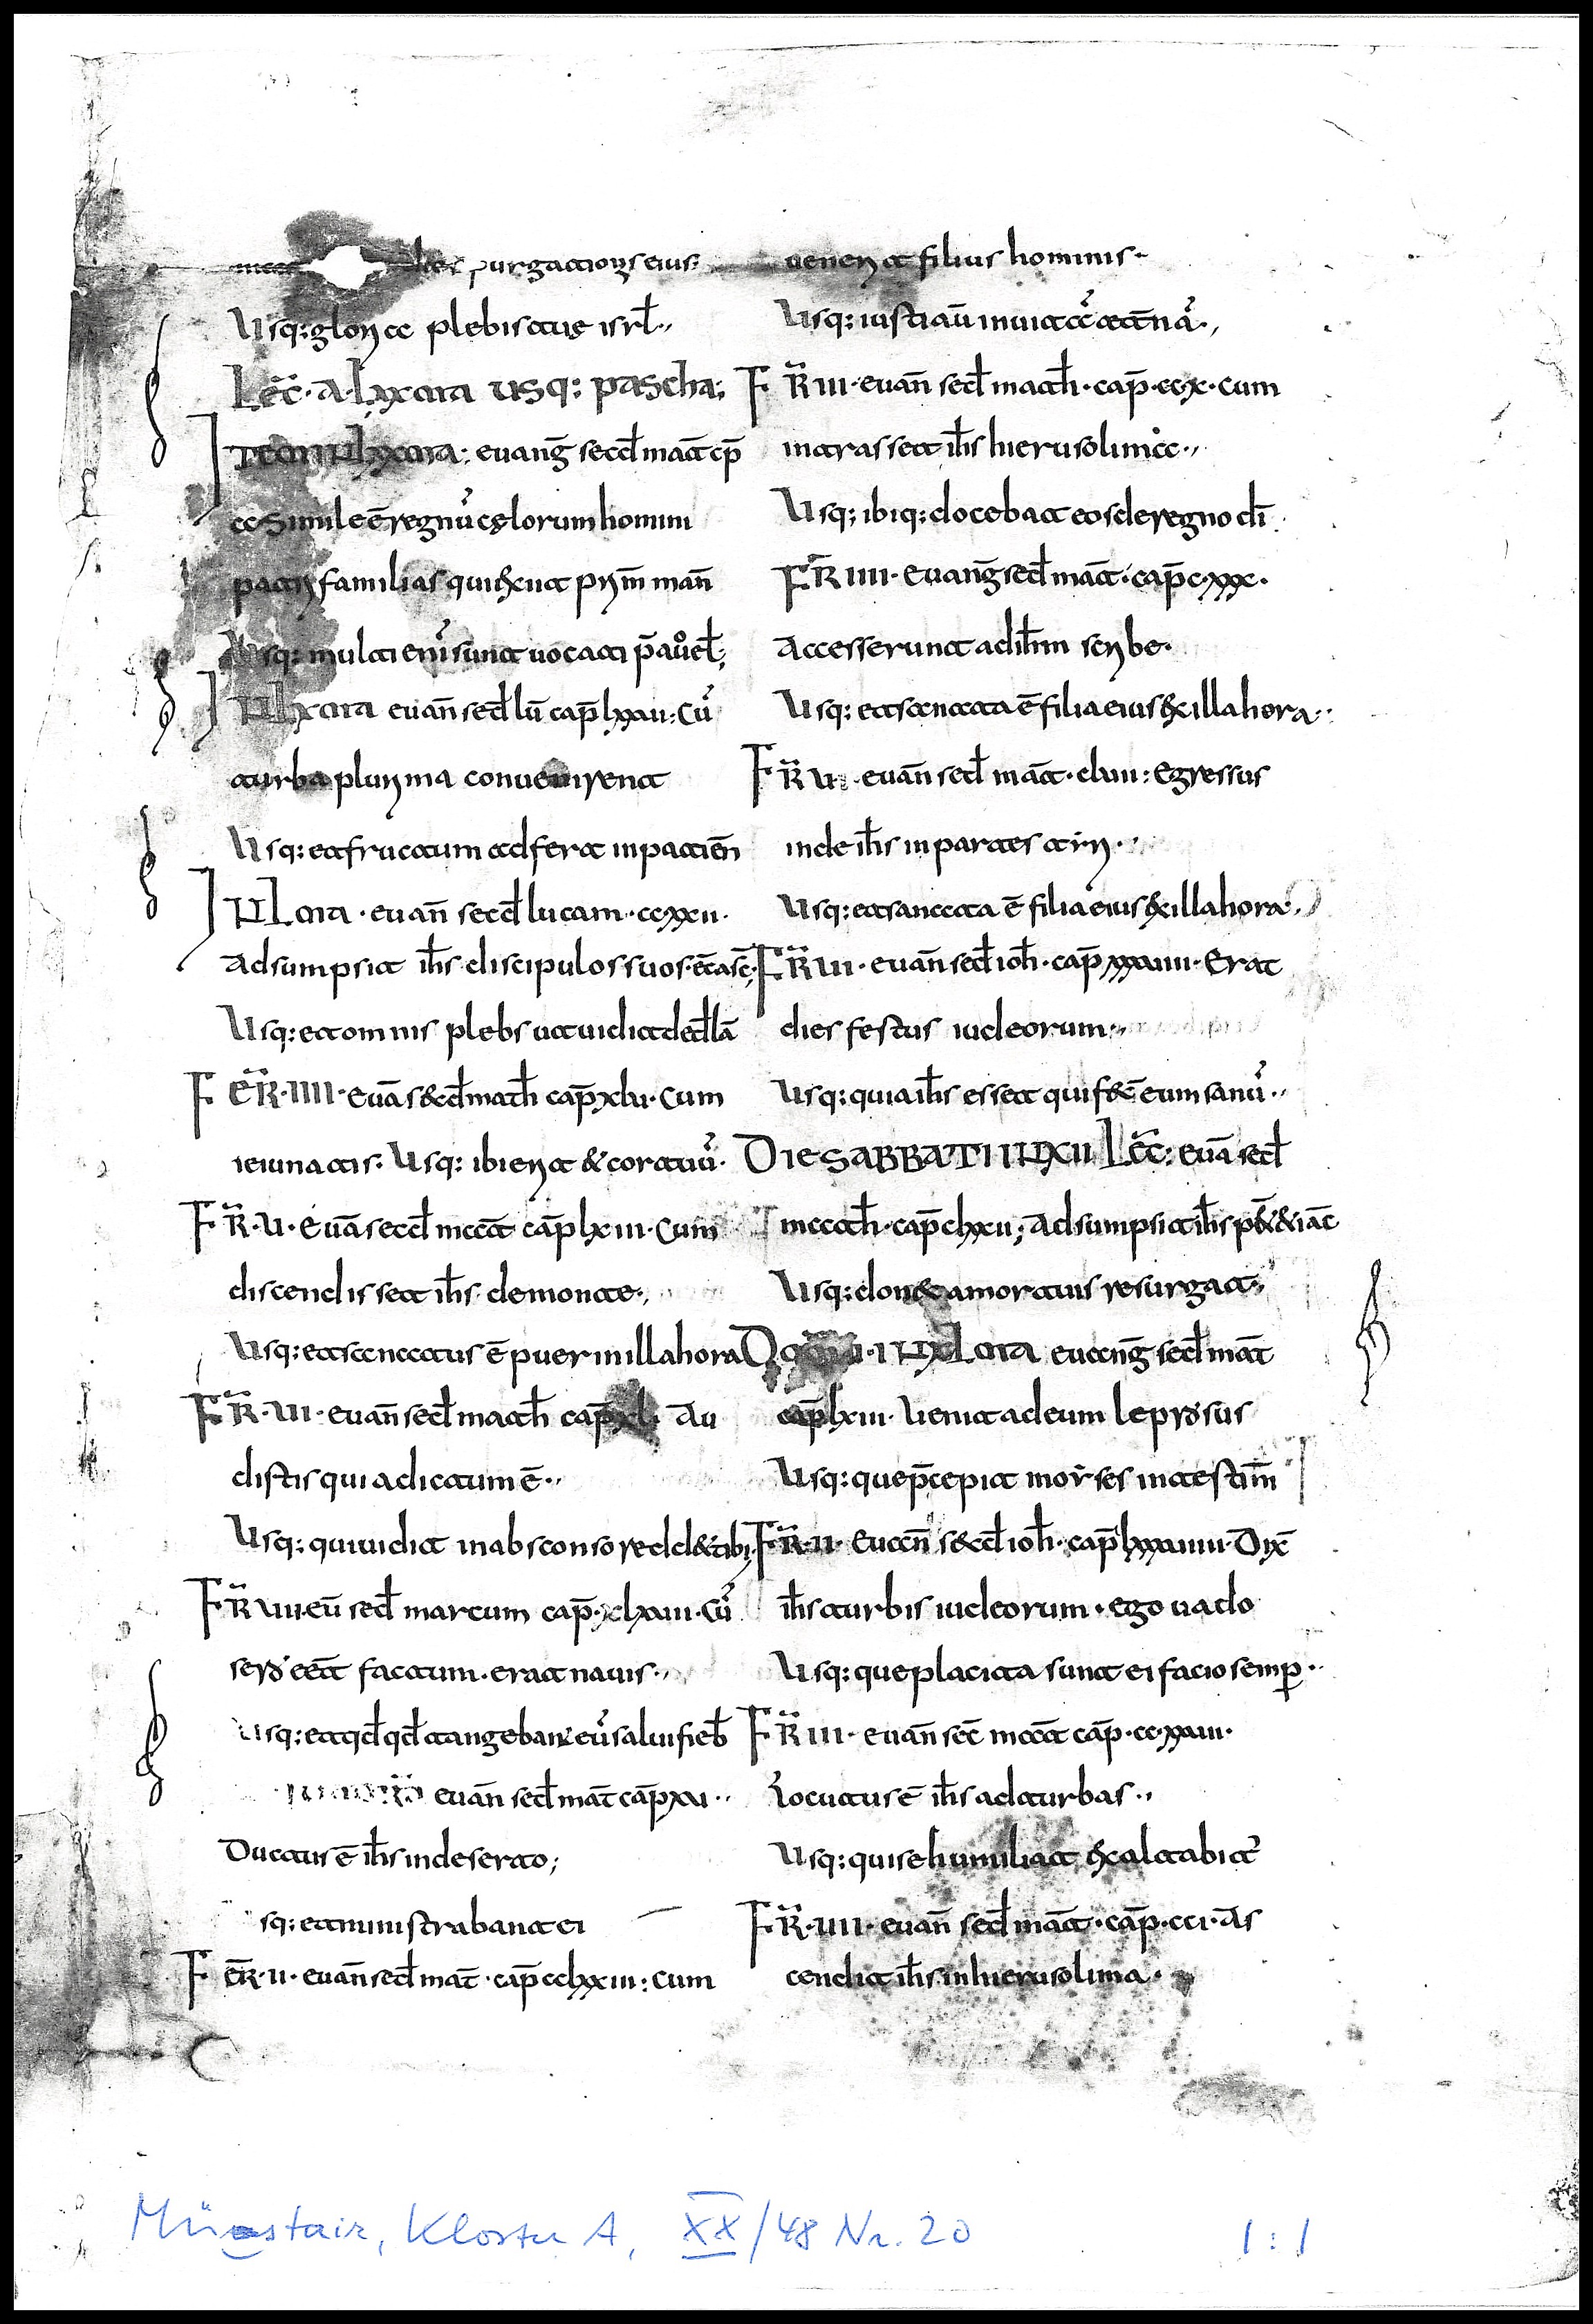 purgationis eius.
Usq: gloria plebis tuę isrł.,
Lec̄. a. Lxma usq: pascha;
evanḡ secd̄ mat̄ cp̄
Simile ē regnū cęlorum homini
patri familias qui exiit prim̄ man̄
Usq: multi enī sunt uocati p̄ au̇ eł;
In Lxma evan̄ secd̄ lū cap̄ lxxvi: Cū
turba plurima convenirent
Usq: et fructum adfert in patien̄
In Lma. evan̄ secd̄ lucam. ccxxii.
Adsumpsit ih̄s discipulos suos. ēt asc̄.
Usq: et omnis plebs ut uidit ded̄ lā
FER. IIII. evā s&d̄ math̄ cap̄ xlvi. Cum
ieiunatis. Usq: ibi erit & cor tuū.
FR̄. V. Evā secd̄ mat̄ cap̄ lxiii. Cum
discendisset ih̄s de monte.,
Usq: et sanatus ē puer in illa hora
FR̄. VI. evan̄ secd̄ math̄ cap̄ Au
distis quia dictum ē.,
Usq: qui uidit in absconso redd& tibi.
FR̄ VII. eū secd̄ marcum cap̄. Cū
sero eēt factum. erat navis.,
Usq: et qd̄ qd̄ tangebant eū salui fieb̄
evan̄ secd̄ mat̄ cap̄ xvi.,
Ductus ē ih̄s in deserto;
sq: et ministrabant ei
FER̄. II. evan̄ secd̄ mat̄. cap̄ cclxxiii: Cum
uenerit filius hominis.
Usq: iusti aū in uitā æt̄nā.,
FR̄ III. evan̄ secd̄ math̄. cap̄. ccx. Cum
intrasset ih̄s hierusolima.,
Usq; ibiq: docebat eos de regno dī.
FR̄ IIII. Evanḡ secd̄ mat̄. cap̄ cxxx.
Accesserunt ad ih̄m scribe.
Usq: et sanata ē filia eius ex illa hora.
FR̄ V. evan̄ secd̄ mat̄. clvii: Egressus
inde ih̄s in partes tiri.
Usq: et sanata ē filia eius ex illa hora.
FR̄ VI. evan̄ secd̄ ioh̄. cap̄ xxxviii. Erat
dies festus iudeorum.,
Usq: quia ih̄s esset qui fec̄ eum sanū.,
DIE SABBATI IN XII Lec̄: evā secd̄
math̄. cap̄ clxxii; Adsumpsit ih̄s p&̄ & iac̄
Usq: donec a mortuis resurgat.
evanḡ secd̄ mat̄
cap̄ lxiii. Uenit ad eum leprosus
Usq: que p̄cepit moyses in testim̄
FR̄. II. Evan̄ s&d̄ ioh̄. cap̄ lxxxviiii. Dix̄
ih̄s turbis iudeorum. ego uado
Usq: que placita sunt ei facio semp̄.
FR̄ III. evan̄ sec̄ mat̄ cap̄. ccxxviii.
Locutus ē ih̄s ad turbas.,
Usq: qui se humiliat exaltabit᷑
FR̄. IIII. evan̄ secd̄ mat̄. cap̄. cci. As
cendit ih̄s in hierusolima.
Müstair, Kloster A, XX/48 Nr. 20
1:1